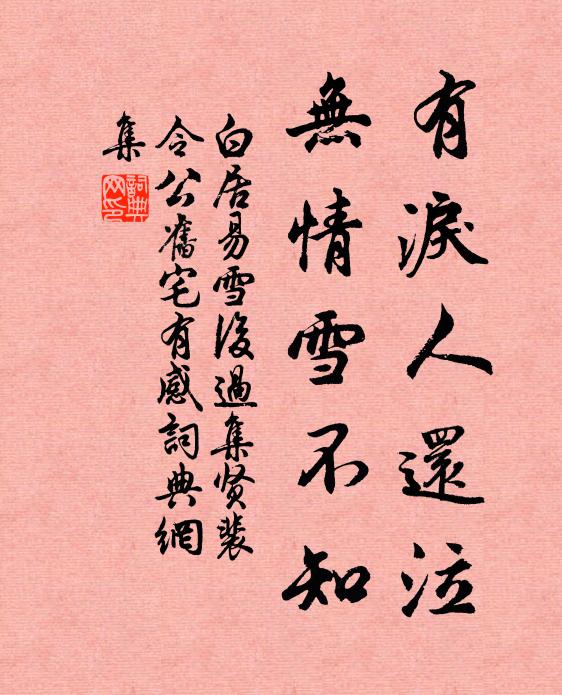 有淚人還泣
無情雪不知
白居易雪後過集贤裴
令公舊宅有感詞典網
集
詞典
网印